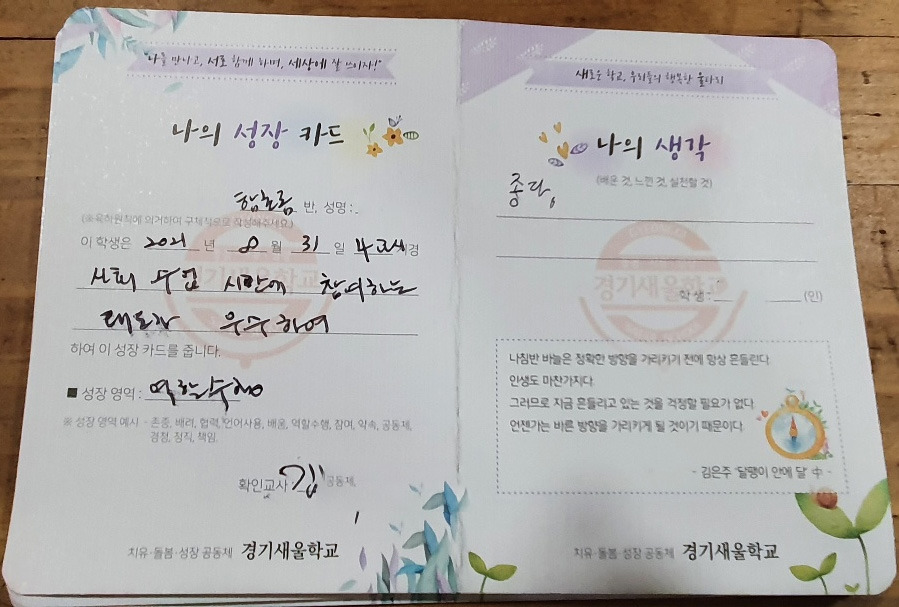 "나를 만나고, 서로 함께 하며, 세상에 잘 쓰이자!"
나의 성장 카드
반, 성명 :
(※육하원칙에 의거하여 구체적으로 작성해주세요.)
이 학생은 2021 년 8 월 31 일 4교시경
사회 수업 시간에 참여하는
태도가 우수하여
하여 이 성장 카드를 줍니다.
■ 성장 영역 : 역할수행
※ 성장 영역 예시 - 존중, 배려, 협력, 언어사용, 배움, 역할수행, 참여, 약속, 공동체,
경청, 정직, 책임.
확인교사 김 공동체,
치유·돌봄·성장 공동체 경기새울학교
새로운 학교, 우리들의 행복한 울타리
나의 생각
(배운 것, 느낀 것, 실천할 것)
좋다,
경기새울학교
학생 : (인)
나침반 바늘은 정확한 방향을 가리키기 전에 항상 흔들린다.
인생도 마찬가지다.
그러므로 지금 흔들리고 있는 것을 걱정할 필요가 없다.
언젠가는 바른 방향을 가리키게 될 것이기 때문이다.
- 김은주 '달팽이 안에 달' 中 -
치유·돌봄·성장 공동체 경기새울학교